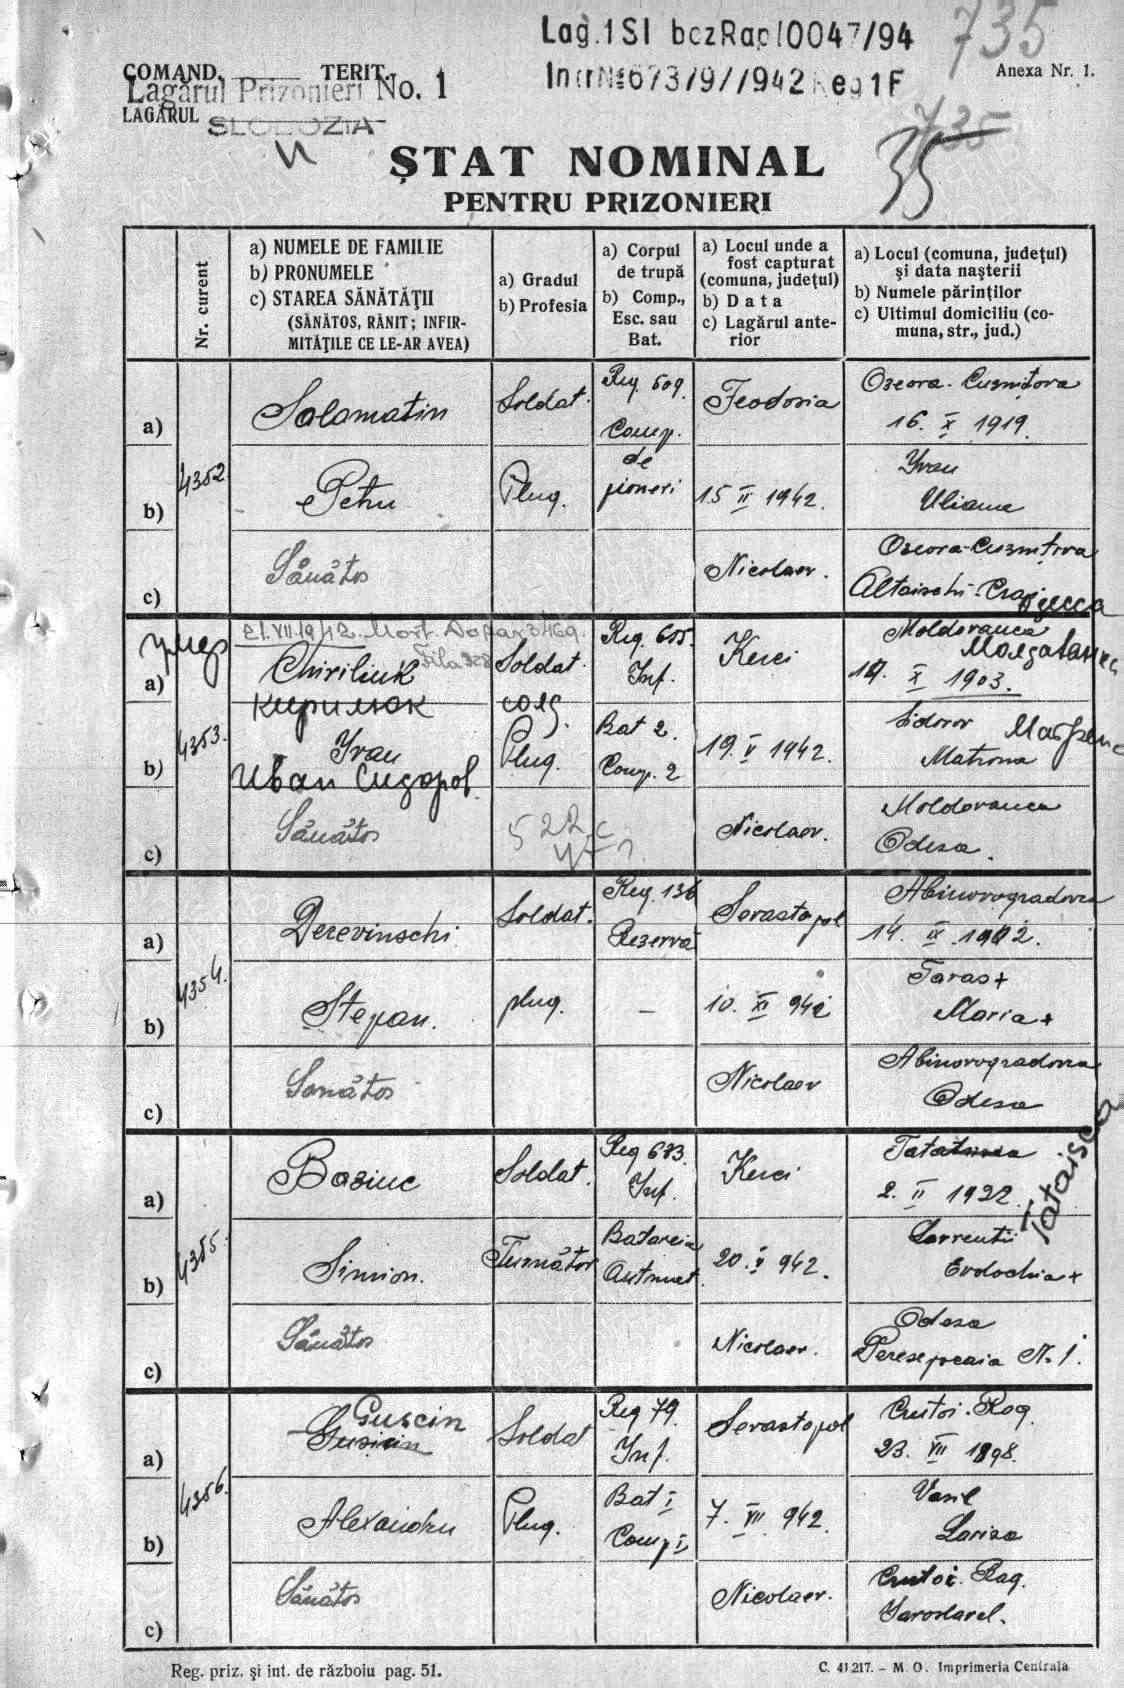 Lag. 1 Sl bczRap/0047/94
735
COMAND. TERIT.
Lagărul Prizonieri No. 1
Anexa Nr. 1.
LAGĂRUL
SLOBOZIA
735
35
ȘTAT NOMINAL
PENTRU PRIZONIERI
Nr. curent
a) NUMELE DE FAMILIE
b) PRONUMELE
c) STAREA SĂNĂTĂȚII
(SĂNĂTOS, RĂNIT; INFIR-
MITĂȚILE CE LE-AR AVEA)
a) Gradul
b) Profesia
a) Corpul
de trupă
b) Comp.,
Esc. sau
Bat.
a) Locul unde a
fost capturat
(comuna, județul)
b) Data
c) Lagărul ante-
rior
a) Locul (comuna, județul)
și data nașterii
b) Numele părinților
c) Ultimul domiciliu (co-
muna, str., jud.)
4352
a)
Solomatin
Soldat.
Reg. 609.
Comp.
Feodosia
Oseora-Cusmițova
16. X 1919.
b)
Petru
Plug.
de
pioneri
15 II 1942.
Yvan
Uliana
c)
Sănătos
Nicolaev.
Oseora-Cusmițova
Altaischi-Crai
Одесса
4353.
умер
21.VII.1942. Mort.
Fila 328
a)
Chiriliuk
Кирилюк
Soldat.
солд.
Reg. 605.
Inf.
Kerci
Moldovanca
Молдаванка
17. X 1903.
b)
Yvan
Иван Сидоров.
Plug.
Bat 2.
Comp. 2
19. V 1942.
Sidorov
Matrona
c)
Sănătos
Nicolaev.
Moldovanca
Odesa.
4354.
a)
Derevinschi
Soldat.
Reg. 136
Rezervă
Sevastopol
Abinovogradovca
14. IX 1912.
b)
Stepan.
plug.
—
10. XI 942
Taras +
Maria +
c)
Sănătos
Nicolaev
Abinovogradovca
Odesa
4355.
a)
Basiuc
Soldat.
Reg 633.
Inf.
Kerci
2. II 1922.
Tataisca
b)
Simion.
Batareia
Automat.
20. V 942.
Lavrentii
Evdochia +
c)
Sănătos
Nicolaev.
Odesa
Peresepcaia N. 1.
4356.
a)
Guscin
Soldat
Reg 79.
Inf.
Sevastopol
Crutoi-Rog.
23. VII 1898.
b)
Alexandru
Plug.
Bat I
Comp I,
7. VII 942.
Vasil
Larisa
c)
Sănătos
Nicolaev.
Crutoi-Rag.
Yaroslavel.
Reg. priz. și int. de războiu pag. 51.
C. 41.217. – M. O. Imprimeria Centrală